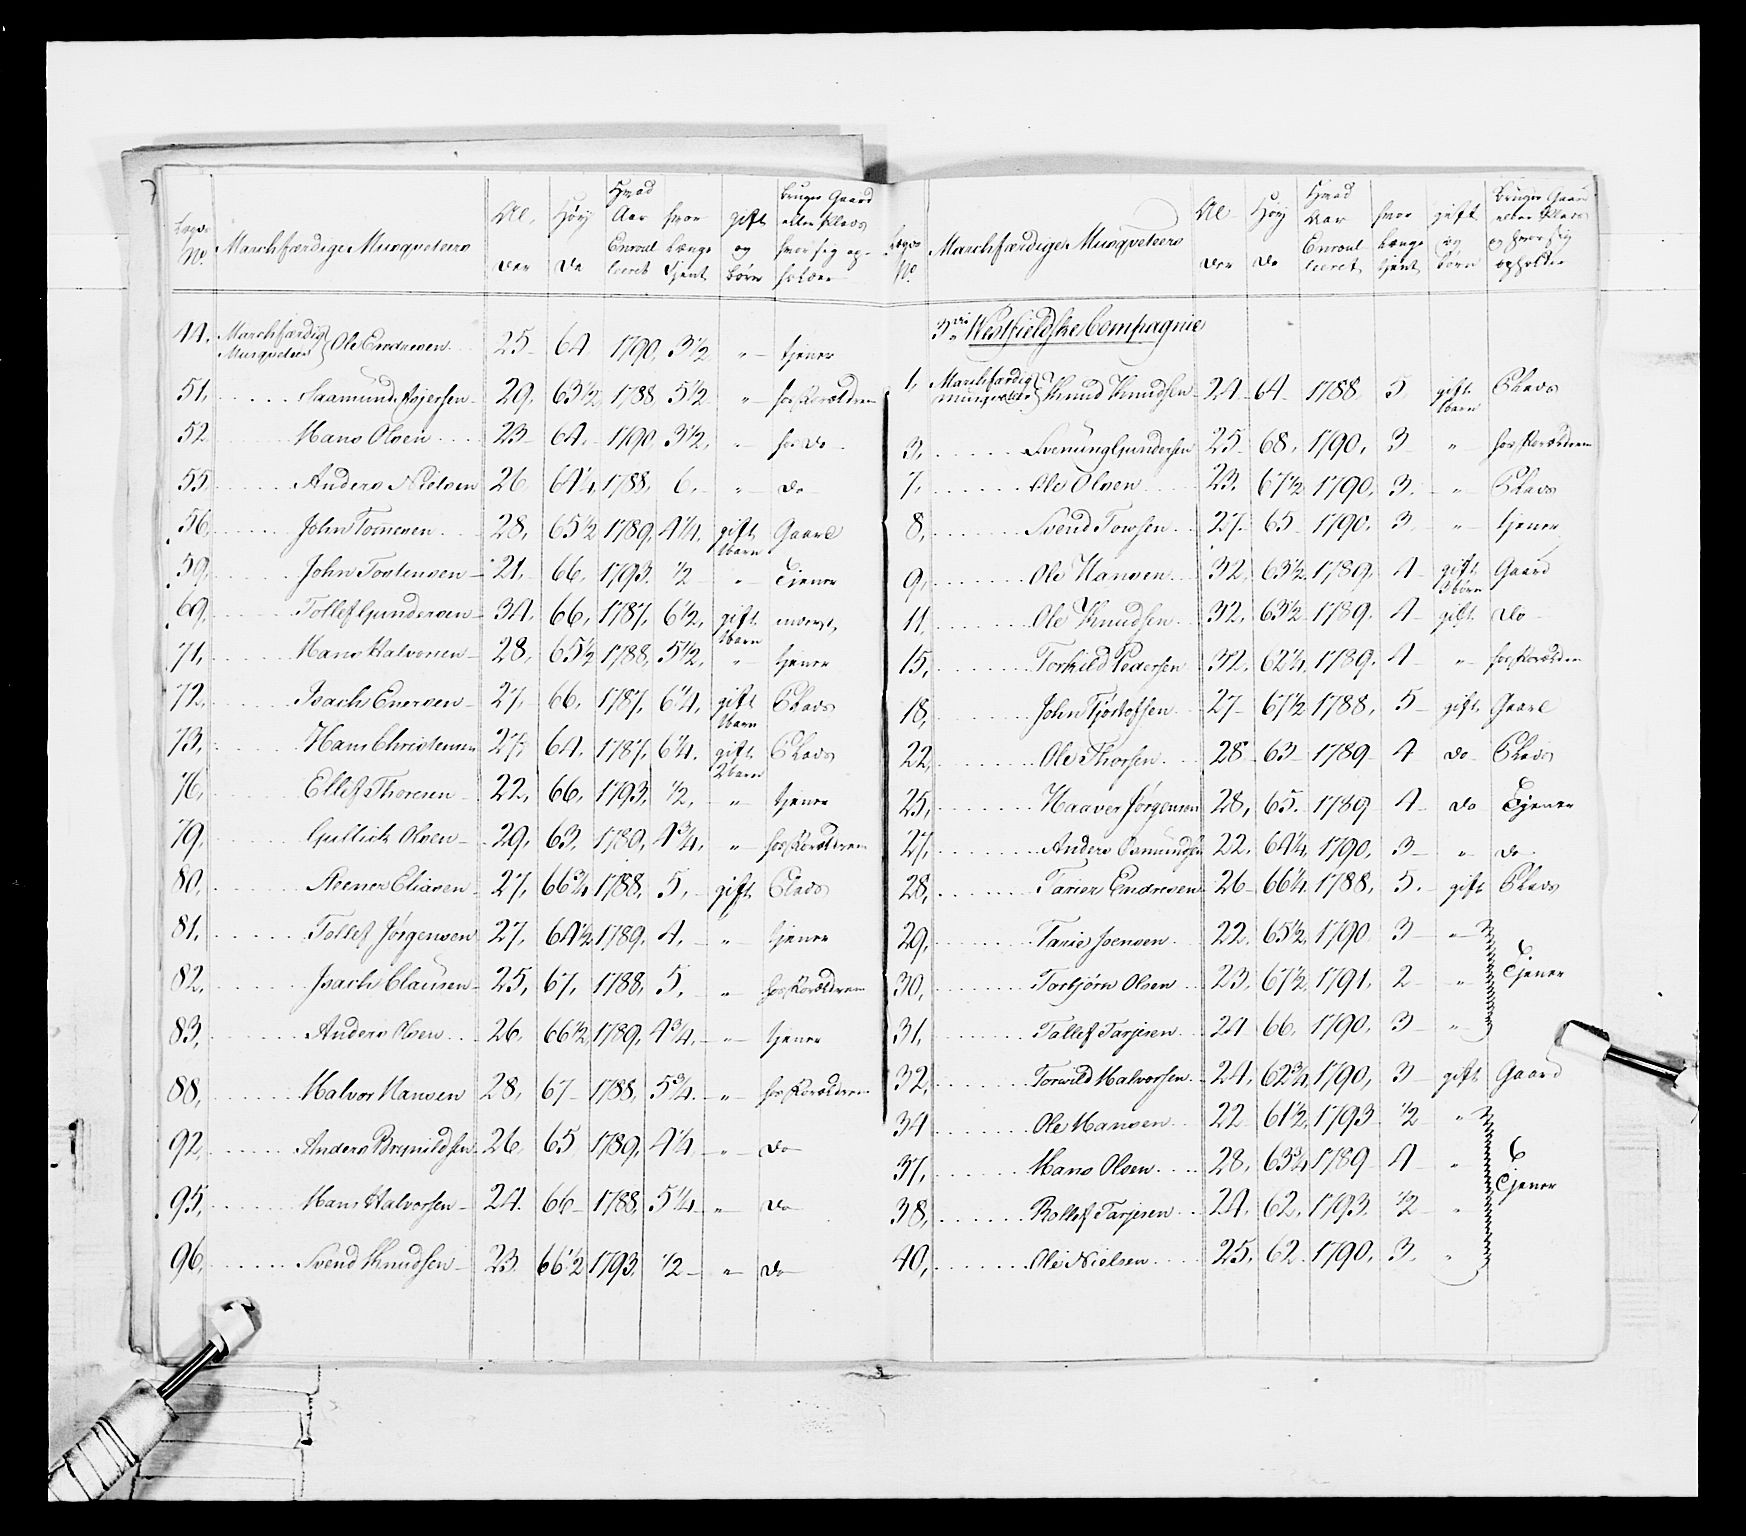 Lægs No. Marchfærdige Musqveteers Alder Høyde Hvad Aar Enroulleeret hvor længe tjent gift og børn bruger Gaard eller Plads
44. Marchfærdig Musqveteer Ole Endresen 25 64 1790 3 1/2 " tjener
51. Aamund Asjersen 29. 63 1/2 1788 5 1/2 " hos Forældrene
52 Hans Olsen 23 64. 1790 3 1/2. " hos do
55 Anders Nielsen 26 64 1/4 1788. 6. " do
56. John Tornesen 28. 65 1/2 1789. 4 1/4. gift 1 barn Gaard
59. John Tostensen 21. 66. 1793. 1/2 " Tjener
69. Tollef Gundersen 34. 66. 1787. 6 1/2. gift 1 barn
71. Hans Halvorsen 28. 65 1/2 1788. 5 1/2. " tjener
72. Isach Enersen 27. 66. 1787. 6 1/4. gift 1 barn Plads
73. Hans Christensen 27. 64. 1787. 6 1/4. gift 2 barn Plads
76. Ellef Thoresen 22. 66. 1793. 1/2. " tjener
79. Gullich Olsen 29. 63. 1789. 4 3/4. " hos Forældrene
80. Steener Eliasen 27. 66 3/4 1788. 5. gift Plads
81. Tollef Jørgensen 27. 64 1/2 1789. 4. " tjener
82. Isach Clausen 25. 67. 1788. 5. " hos Forældrene
83. Anders Olsen 26. 66 1/2 1789. 4 3/4. " tjener
88. Halvor Hansen 28. 67 1788. 5 3/4. " hos Forældrene
92. Anders Brynildsen 26. 65 1789. 4 1/4 " do
95. Hans Halvorsen 24. 66 1788 5 1/4 " do
96. Svend Knudsen 23 66 1/2 1793. 1/2 " do
Lægs No. Marchfærdige Musqveteers Alder Høyde Hvad Aar Enroulleeret hvor længe tjent gift og børn bruger Gaard eller Plads og hvor sig opholder
3die Westfieldske Compagnie
1. Marchfærdig Musqveteer Knud Knudsen 24 64 1788 5 gift 1 barn Plads
3. Svenung Gundersen 25 68. 1790. 3 " hos Forældrene
7. Ole Olsen 23. 67 1/2 1790. 3. " Plads
8. Svend Towsen 27. 65 1790. 3 " tjener
9. Ole Hansen 32. 63 1/2 1789. 4 gift 3 børn Gaard
11. Ole Knudsen 32. 63 1/2 1789. 4 gift do
15. Torkild Pedersen 32. 62 1/4 1789. 4 " hos Forældrene
18. John Tjostofsen 27 67 1/2 1788. 5 gift Gaard
22. Ole Thorsen 28 63 1789 4 do Plads
25. Haaver Jørgensen 28. 65. 1789 4 do Tjener
27. Anders Osmundsen 22. 64 1/4 1790. 3 " do
28. Tarier Endresen 26 66 1/4 1788. 5. gift Plads
29. Tarie Joensen 22. 65 1/2 1790 3 "
30. Torbjørn Olsen 23. 67 1/2 1791. 2 " Tjener
31. Tollef Tarjesen 24 66. 1790. 3 "
32. Torvild Halvorsen 24. 62 3/4 1790. 3 gift Gaard
34 Ole Hansen 22 61 1/2 1793 1/2 "
37. Hans Olsen 28. 63 3/4 1789 4 " Tjener
38. Rollef Tarjesen 24. 62. 1793. 1/2 "
40. Ole Nielsen 25. 62. 1790. 3. "